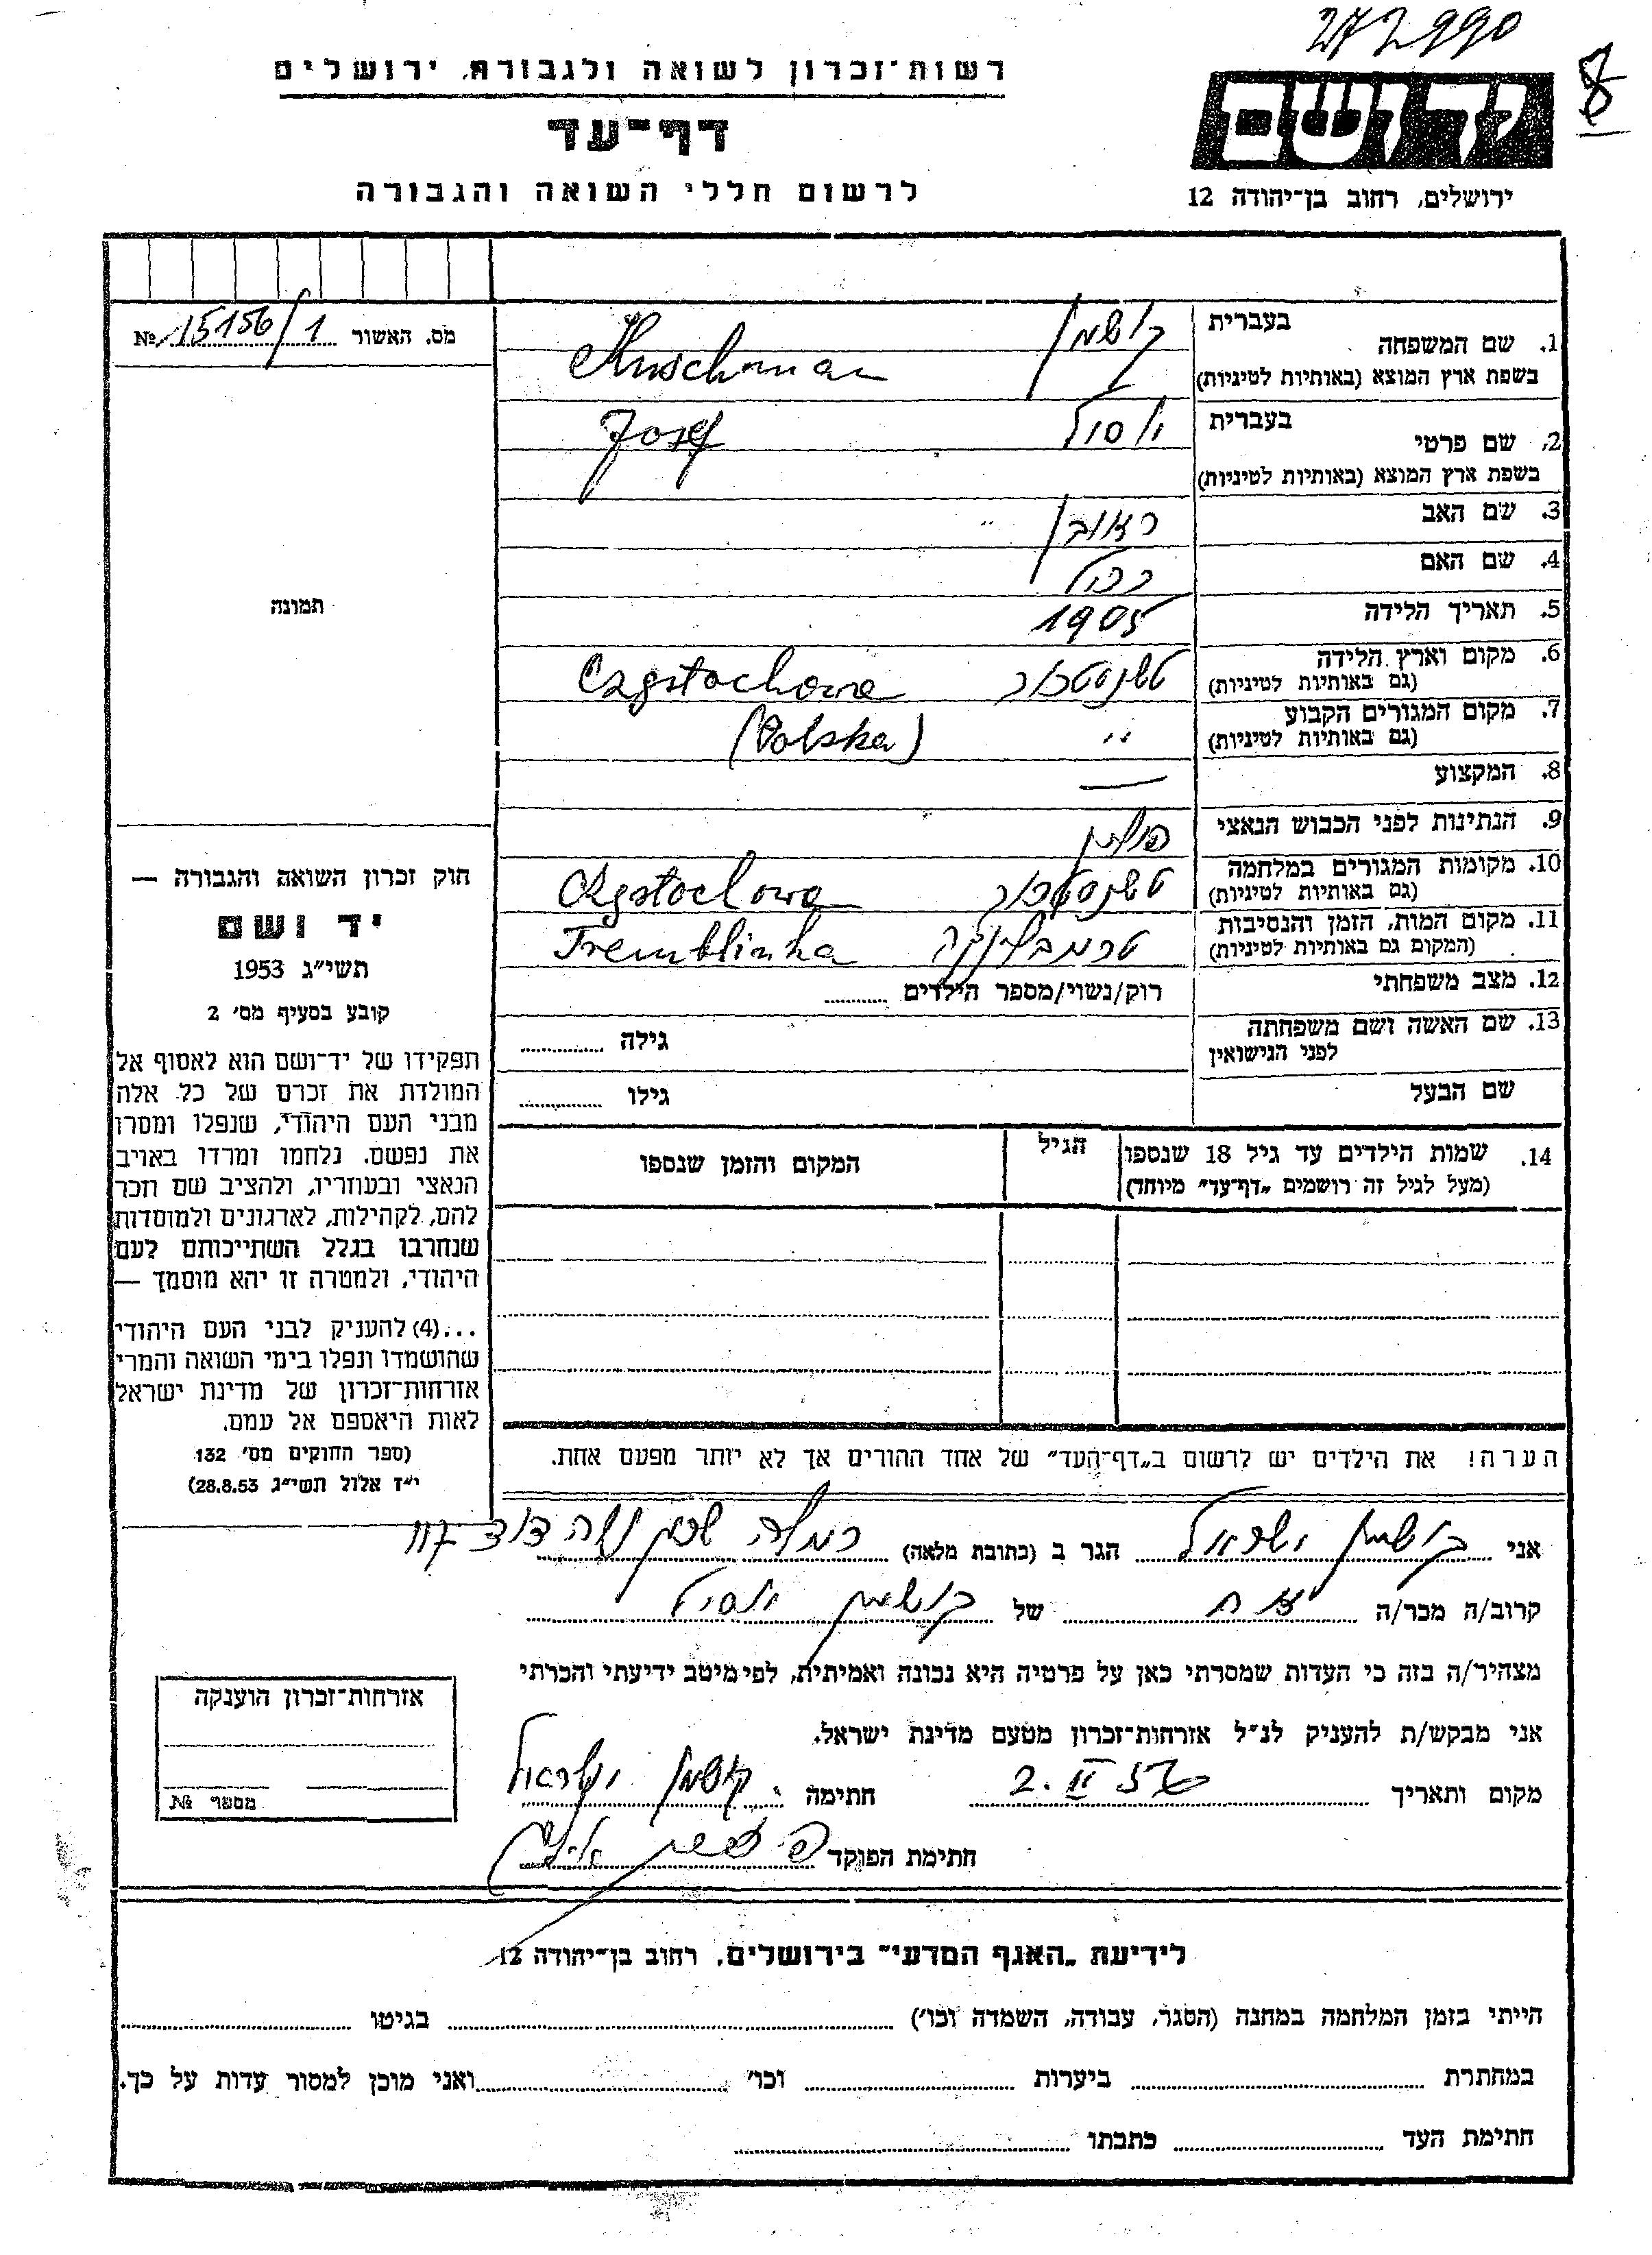 272990
8
יד ושם
ירושלים, רחוב בן־יהודה 12
רשות־זכרון לשואה ולגבורה, ירושלים
דף־עד
לרשום חללי השואה והגבורה
מס. האשור 15156/1 №
1. שם המשפחה
בעברית קושמן
בשפת ארץ המוצא (באותיות לטיניות) Kuschman
2. שם פרטי
בעברית יוסף
בשפת ארץ המוצא (באותיות לטיניות) Josef
3. שם האב ראובן
4. שם האם רחל
5. תאריך הלידה 1905
6. מקום וארץ הלידה
(גם באותיות לטיניות) טשנסטכוב Częstochowa
7. מקום המגורים הקבוע
(גם באותיות לטיניות) " (Polska)
8. המקצוע —
9. הנתינות לפני הכבוש הנאצי פולין
10. מקומות המגורים במלחמה
(גם באותיות לטיניות) טשנסטכוב Częstochowa
11. מקום המות, הזמן והנסיבות
(המקום גם באותיות לטיניות) טרמבלינקה Tremblinka
12. מצב משפחתי רוק/נשוי/מספר הילדים
13. שם האשה ושם משפחתה
לפני הנישואין גילה
שם הבעל גילו
14. שמות הילדים עד גיל 18 שנספו הגיל המקום והזמן שנספו
(מעל לגיל זה רושמים „דף־עד״ מיוחד)
הערה! את הילדים יש לרשום ב„דף־העד״ של אחד ההורים אך לא יותר מפעם אחת.
תמונה
חוק זכרון השואה והגבורה —
יד ושם
תשי״ג 1953
קובע בסעיף מס׳ 2
תפקידו של יד־ושם הוא לאסוף אל
המולדת את זכרם של כל אלה
מבני העם היהודי, שנפלו ומסרו
את נפשם, נלחמו ומרדו באויב
הנאצי ובעוזריו, ולהציב שם וזכר
להם, לקהילות, לארגונים ולמוסדות
שנחרבו בגלל השתייכותם לעם
היהודי, ולמטרה זו יהא מוסמך —
...(4) להעניק לבני העם היהודי
שהושמדו ונפלו בימי השואה והמרי
אזרחות־זכרון של מדינת ישראל
לאות היאספם אל עמם.
(ספר החוקים מס׳ 132
י״ז אלול תשי״ג 28.8.53)
אני קושמן ישראל הגר ב (כתובת מלאה) רמלה שכון נוה דוד
קרוב/ה מכר/ה אח של קושמן יוסף
מצהיר/ה בזה כי העדות שמסרתי כאן על פרטיה היא נכונה ואמיתית, לפי מיטב ידיעתי והכרתי
אני מבקש/ת להעניק לנ״ל אזרחות־זכרון מטעם מדינת ישראל.
מקום ותאריך 2. II 56 חתימה קושמן ישראל
חתימת הפוקד
אזרחות־זכרון הוענקה
מספר №
לידיעת „האגף המדעי״ בירושלים, רחוב בן־יהודה 12
הייתי בזמן המלחמה במחנה (הסגר, עבודה, השמדה וכו׳) בגיטו
במחתרת ביערות וכו׳ ואני מוכן למסור עדות על כך.
חתימת העד כתבתו